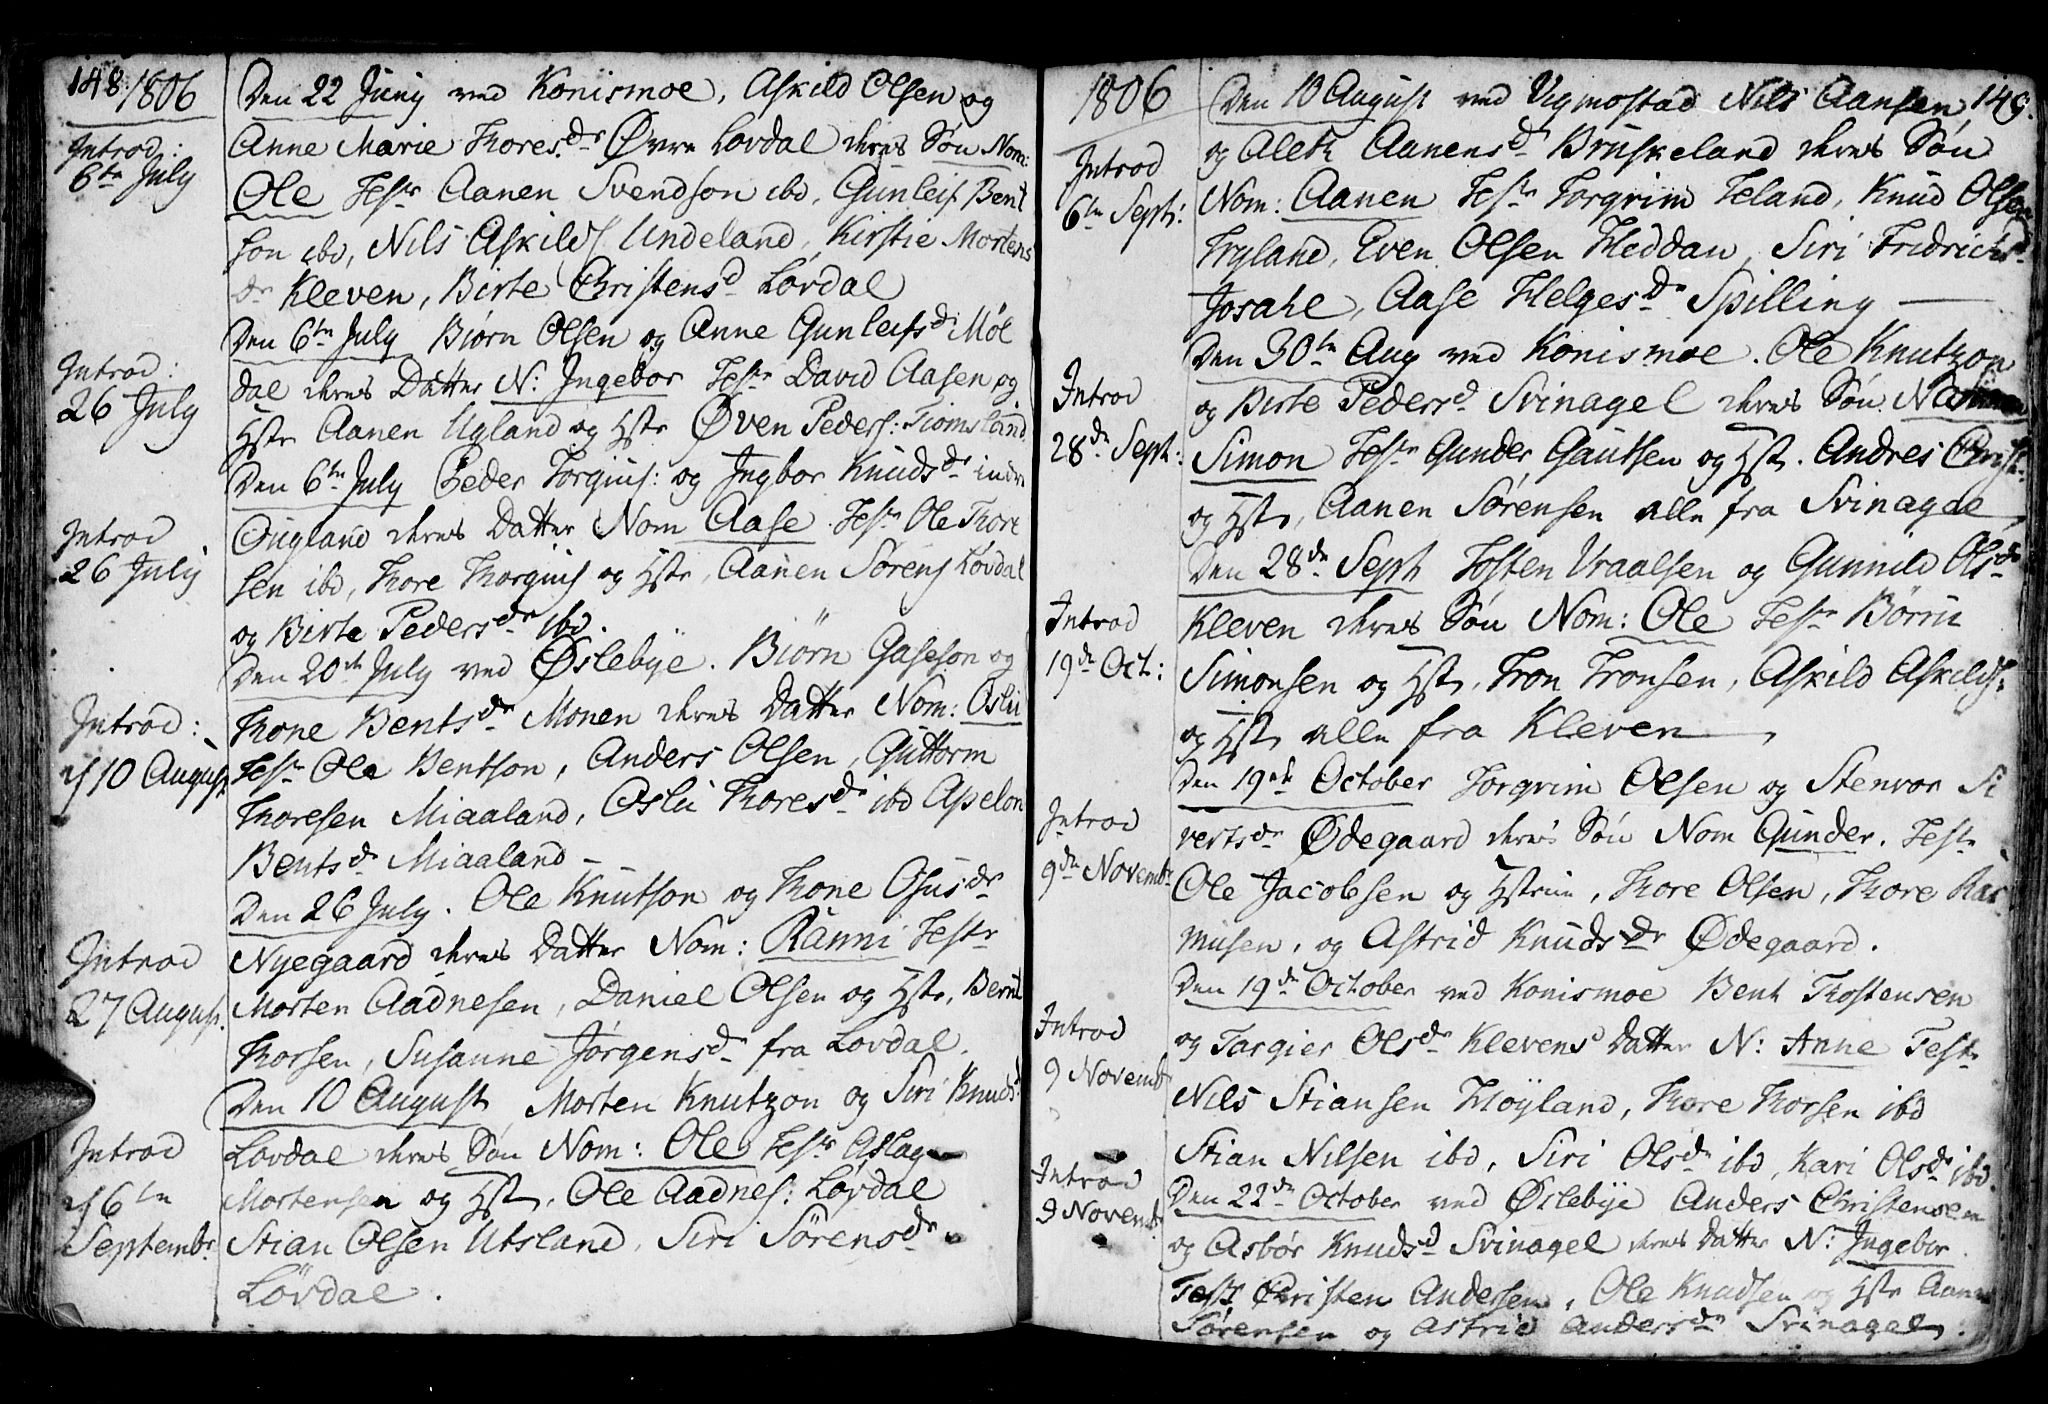 148. 1806
Introd:
6te July
Den 22 Juny ved Konismoe, Askild Olsen og
Anne Marie Thoresdr Øvre Lovdal deres Søn Nom:
Ole Testr Aanen Svendson ibd, Gunleif Bent
son ibd, Nils Askilds Undeland, Kirstie Mortens
dr Kleven, Birte Christensd Lovdal
Introd:
26 July
Den 6te July Biørn Olsen og Anne Gunleifsd: Møl
dal deres Datter N: Ingebor Testr David Aasen og
Hstr Aanen Ugland og Hstr Øven Peders: Tiomsland.
Introd
26 July
Den 6te July Peder Torquis: og Ingbor Knudsdr indre
Øugland deres Datter Nom Aase. Testr Ole Thore
sen ibd, Thore Thorquis og Hstr, Aanen Sørens Lovdal
og Birte Pedersdr ibd.
Introd:
d 10 August
Den 20de July ved Øslebye. Biørn Gaseson og
Thone Bentsdr Monen deres Datter Nom: Oslu
Testr Ole Bentson, Anders Olsen, Guttorm
Thoresen Miaaland, Oslu Thoresdr ibd Apelon
Bentsdr Miaaland
Introd
27 August.
Den 26 July. Ole Knutson og Thone Osusdr
Nyegaard deres Datter Nom: Ranni Testr
Morten Aadnesen, Daniel Olsen og Hstr, Bernt
Thorsen, Susanne Jørgensdr fra Lovdal.
Introd
d 6te
Septembr
Den 10 August Morten Knutzon og Siri Knudsd
Lovdal deres Søn Nom: Ole Testr Aslag
Mortensen og Hstr, Ole Aadnes: Løvdal
Stian Olsen Utsland, Siri Sørensdr
Løvdal.
1806
149.
Introd
6te Sept:
Den 10 August ved Vigmostad Nils Aansen
og Aleth Aanensd Bruskeland deres Søn
Nom: Aanen Testr Torgrim Teland, Knud Olsen
Tryland, Even Olsen Heddan, Siri Fridrichsd
Josahl, Aase Helgesdr Spilling
Introd
28de Sept:
Den 30te Aug ved Konismoe. Ole Knutzon
og Birte Pedersd Svinagel deres Søn
Simon Testr Gunder Gautsen og Hstr. Andres Christ:
og Hstr, Aanen Sørensen alle fra Svinagel
Introd
19de Oct:
Den 28de Sept Tosten Vraalsen og Gunnild Olsdr
Kleven deres Søn Nom: Ole Testr Børru
Simonsen og Hstr, Tron Tronsen, Askild Askilds:
og Hstr alle fra Kleven
Introd
9de Novembr
Den 19de October Torgrim Olsen og Stenvor Si
vertsdr Ødegaard deres Søn Nom Gunder. Testr
Ole Jacobsen og Hstruu, Thore Olsen, Thore Ras
musen, og Astrid Knudsdr Ødegaard.
Introd
9 Novemb
Den 19de October ved Konismoe Bent Thostensen
og Targier Olsdr Klevens Datter N: Anne Testr
Nils Stiansen Høyland, Thore Thorsen ibd
Stian Nilsen ibd, Siri Olsdr ibd, Kari Olsdr ibd.
Introd
9 Novemb
Den 22de October ved Øslebye Anders Christensen
og Asbør Knudsd Svinagel deres Datter N: Ingebor.
Testr Christen Andersen, Ole Knudsen og Hstr Aanen
Sørensen og Astrid Andersdr Svinagel.